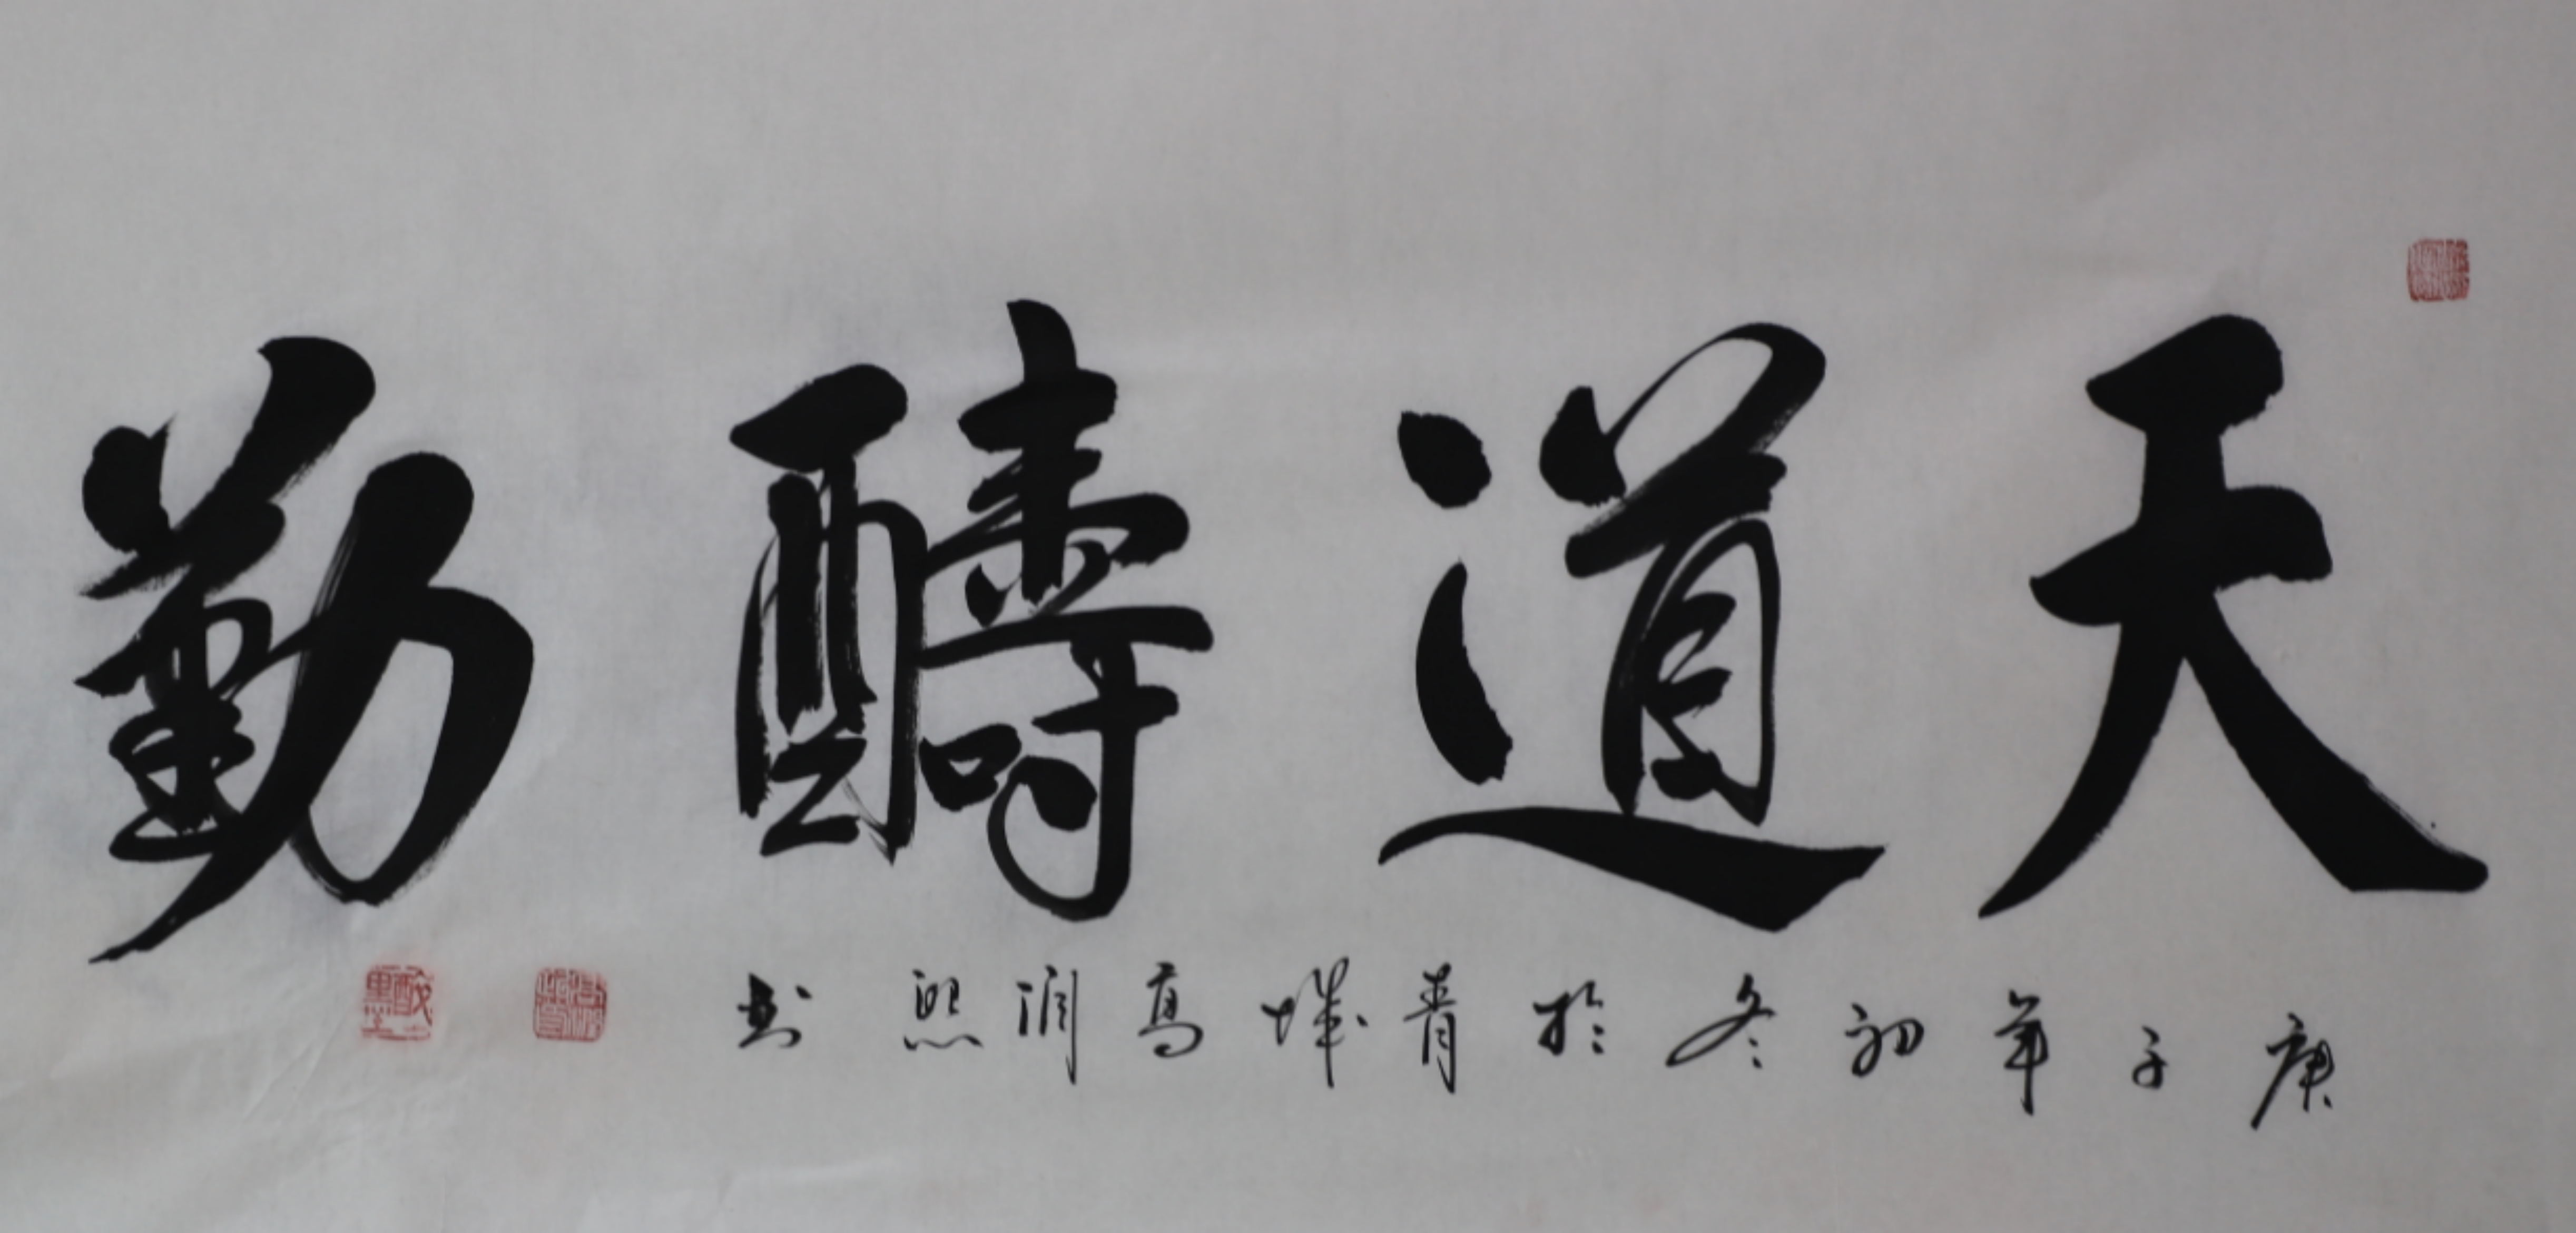 天道酬勤
庚子年初冬於青城高润熙书